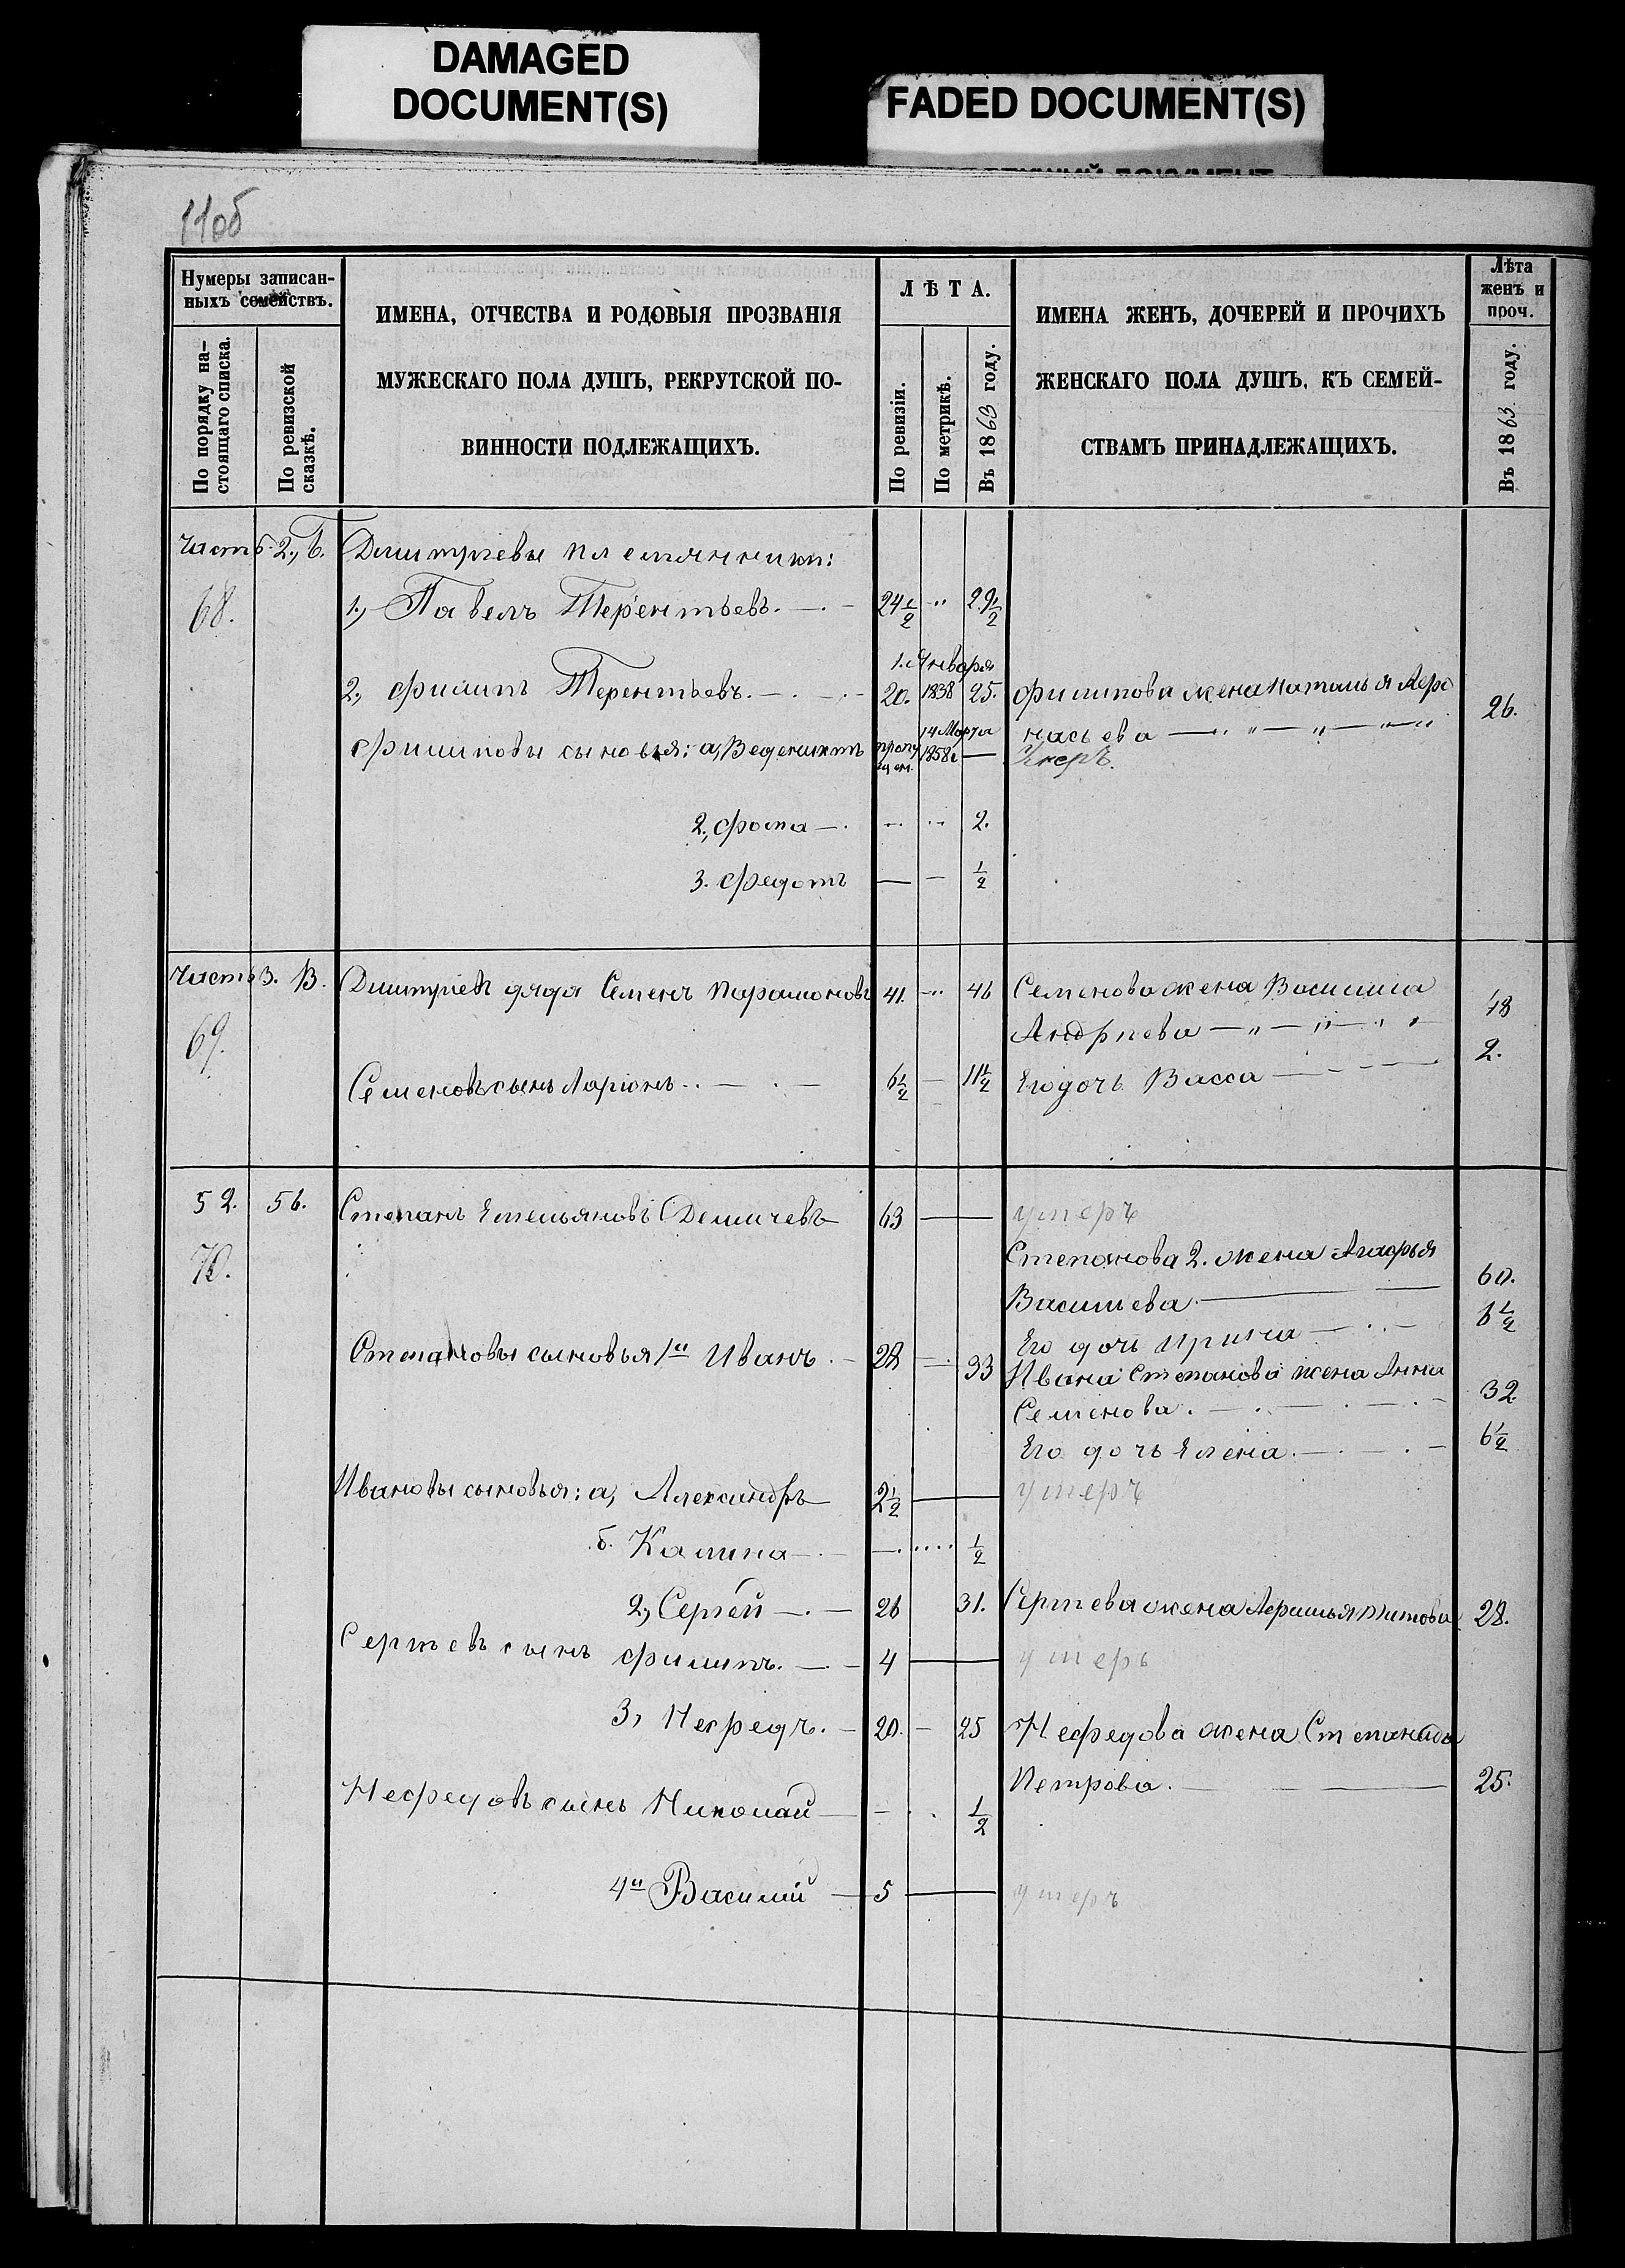 DAMAGED
DOCUMENT(S)
FADED DOCUMENT(S)
11об
Нумеры записан-
ныхъ семействъ.
По порядку на-
стоящаго списка.
По ревизской
сказкѣ.
ИМЕНА, ОТЧЕСТВА И РОДОВЫЯ ПРОЗВАНІЯ
МУЖЕСКАГО ПОЛА ДУШЪ, РЕКРУТСКОЙ ПО-
ВИННОСТИ ПОДЛЕЖАЩИХЪ.
ЛѢТА.
По ревизіи.
По метрикѣ.
Въ 1863 году.
ИМЕНА ЖЕНЪ, ДОЧЕРЕЙ И ПРОЧИХЪ
ЖЕНСКАГО ПОЛА ДУШЪ, КЪ СЕМЕЙ-
СТВАМЪ ПРИНАДЛЕЖАЩИХЪ.
Лѣта
женъ и
проч.
Въ 1863 году.
Часть 2., Б. Дмитріевы племянники:
68. 1., Павелъ Терентьевъ. 24½ " 29½
1. Января
2., Филипъ Терентьевъ. 20. 1838 25. Филипова жена Наталья Афо
14 Марта насьева 26.
Филиповы сыновья: а, Веденикт пропущен. 1858 г — Умеръ.
2., Фома 2.
3. Федотъ ½
Часть 3. В. Дмитріевъ дядя Семенъ Парамоновъ 41. 46 Семенова жена Василиса
69. Андріева 48
Семеновъ сынъ Ларіонъ 6½ 11½ Его дочь Васса 2.
52. 56. Степанъ Емельяновъ Демичевъ 63 умеръ
70. Степанова 2. жена Агафья
Васильева 60.
Его дочь Ирина 6½
Степановы сыновья 1й Иванъ 28 33 Ивана Степанова жена Анна
Семенова. 32
Его дочь Елена. 6½
Ивановы сыновья: а, Александръ 2½ умеръ
б. Калина ½
2, Сергей 26 31. Сергева жена Афимья Титова 28.
Сергевъ сынъ Филипъ. 4 умеръ
3, Нефедъ. 20. 25 Нефедова жена Степанида
Петрова. 25.
Нефедовъ сынъ Николай ½
4й Василий 5 умеръ